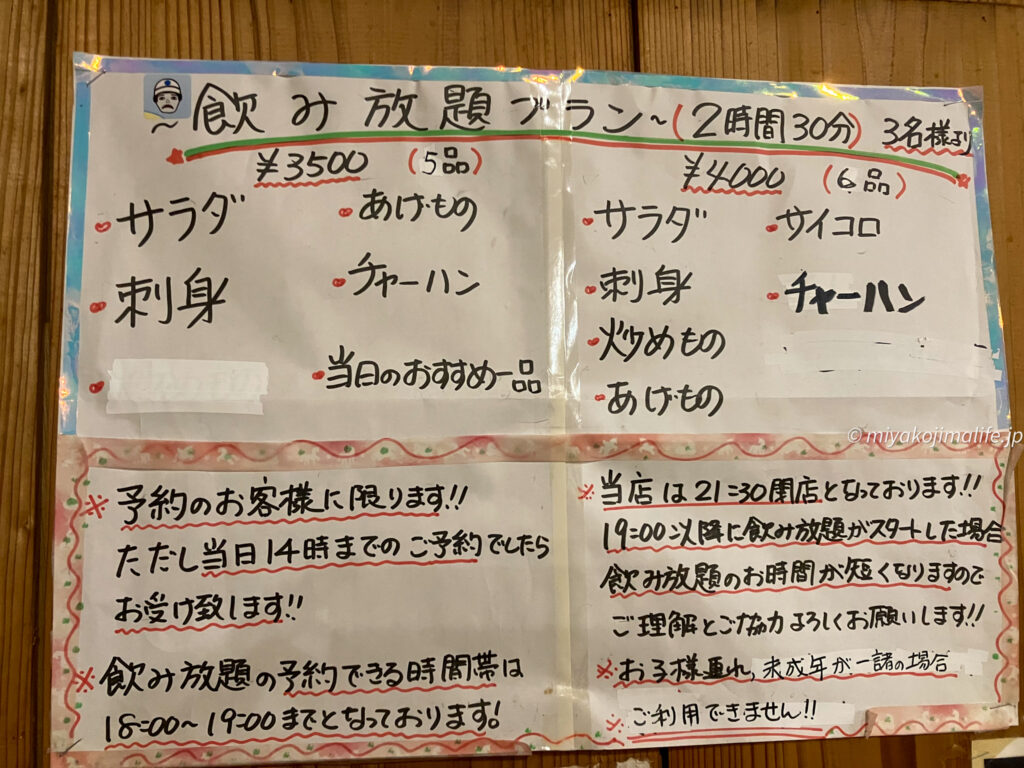 ~飲み放題プラン~(2時間30分) 3名様より
¥3500 (5品)
・サラダ
・刺身
・あげもの
・チャーハン
・当日のおすすめ一品
¥4000 (6品)
・サラダ
・刺身
・炒めもの
・あげもの
・サイコロ
・チャーハン
※予約のお客様に限ります!!
ただし当日14時までのご予約でしたら
お受け致します!!
※飲み放題の予約できる時間帯は
18:00~19:00までとなっております!
※当店は21:30閉店となっております!!
19:00以降に飲み放題がスタートした場合
飲み放題のお時間が短くなりますので
ご理解とご協力よろしくお願いします!!
※お子様連れ,未成年が一諸の場合
※ご利用できません!!
© miyakojimalife.jp